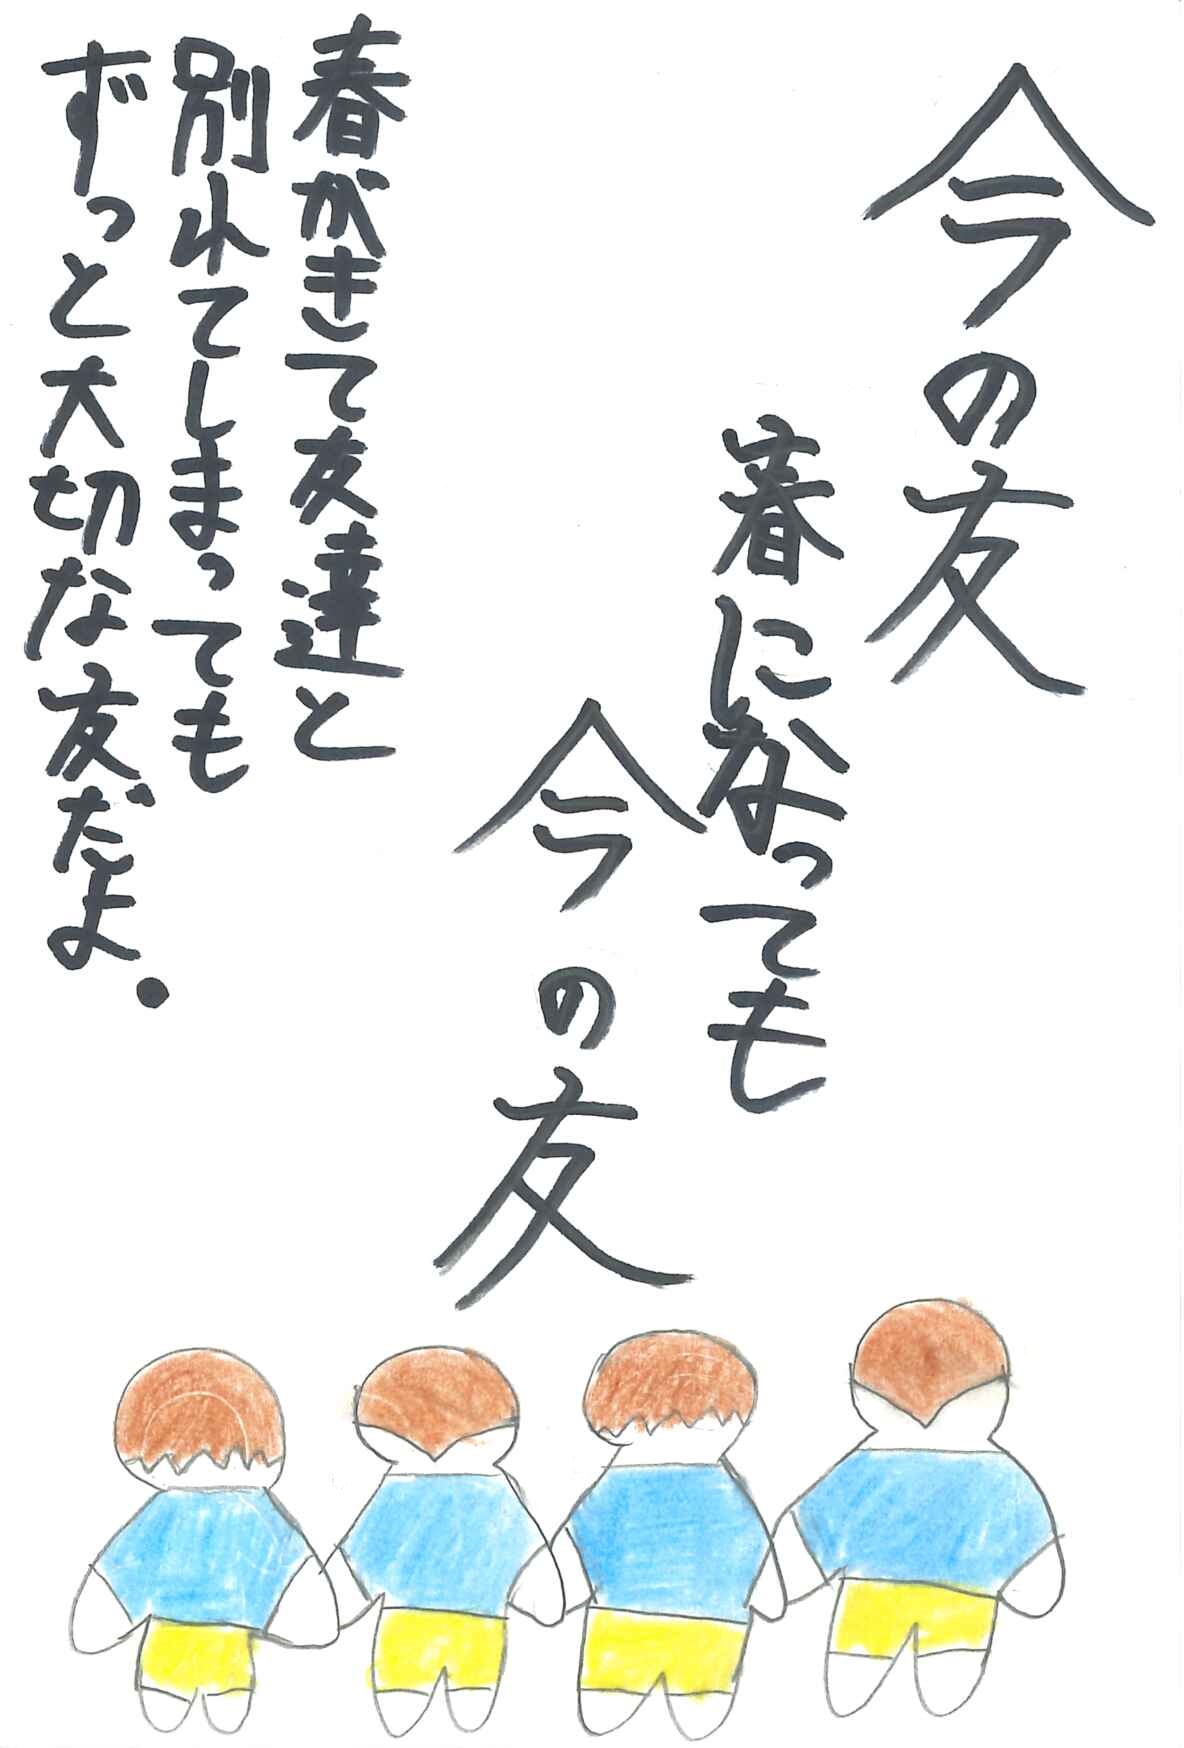 今の友
春になっても
今の友
春がきて友達と
別れてしまっても
ずっと大切な友だよ.